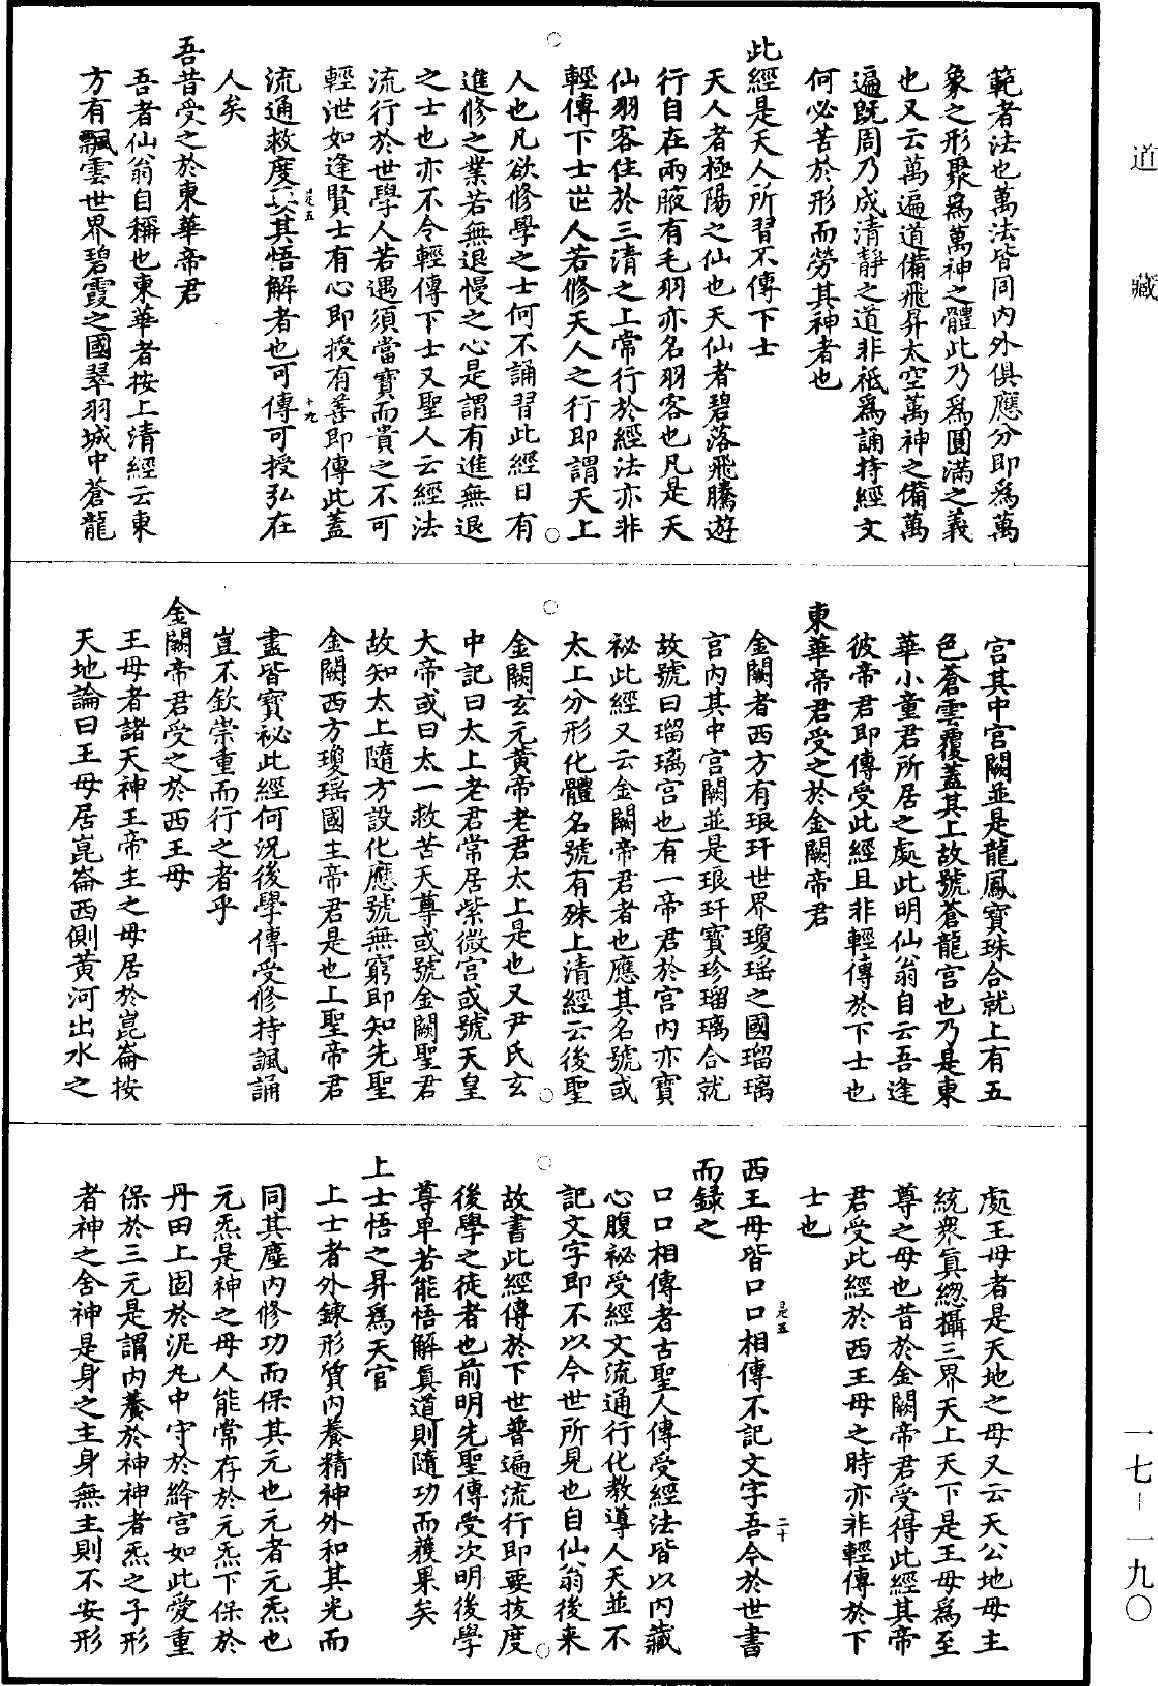 道藏
一七-一九〇
範者法也萬法皆同內外俱應分即爲萬
象之形聚爲萬神之體此乃爲圓滿之義
也又云萬遍道備飛昇太空萬神之備萬
遍既周乃成清靜之道非祇爲誦持經文
何必苦於形而勞其神者也
此經是天人所習不傳下士
天人者極陽之仙也天仙者碧落飛騰遊
行自在兩腋有毛羽亦名羽客也凡是天
仙羽客住於三清之上常行於經法亦非
輕傳下士世人若修天人之行即謂天上
人也凡欲修學之士何不誦習此經日有
進修之業若無退慢之心是謂有進無退
之士也亦不令輕傳下士又聖人云經法
流行於世學人若遇須當寶而貴之不可
輕泄如逢賢士有心即授有善即傳此蓋
流通救度要其悟解者也可傳可授弘在
是五
十九
人矣
吾昔受之於東華帝君
吾者仙翁自稱也東華者按上清經云東
方有飄雲世界碧霞之國翠羽城中蒼龍
宮其中宮闕並是龍鳳寶珠合就上有五
色蒼雲覆蓋其上故號蒼龍宮也乃是東
華小童君所居之處此明仙翁自云吾逢
彼帝君即傳受此經且非輕傳於下士也
東華帝君受之於金闕帝君
金闕者西方有琅玕世界瓊瑶之國瑠璃
宮內其中宮闕並是琅玕寶珍瑠璃合就
故號曰瑠璃宮也有一帝君於宮內亦寶
祕此經又云金闕帝君者也應其名號或
太上分形化體名號有殊上清經云後聖
金闕玄元黃帝老君太上是也又尹氏玄
中記曰太上老君常居紫微宮或號天皇
大帝或曰太一救苦天尊或號金闕聖君
故知太上隨方設化應號無窮即知先聖
金闕西方瓊瑶國主帝君是也上聖帝君
盡皆寶祕此經何況後學傳受修持諷誦
豈不欽崇重而行之者乎
金闕帝君受之於西王母
王母者諸天神王帝主之母居於崑崙按
天地論曰王母居崑崙西側黃河出水之
處王母者是天地之母又云天公地母主
統衆眞緫攝三界天上天下是王母爲至
尊之母也昔於金闕帝君受得此經其帝
君受此經於西王母之時亦非輕傳於下
士也
西王母皆口口相傳不記文字吾今於世書
是五
二十
而録之
口口相傳者古聖人傳受經法皆以內藏
心腹祕受經文流通行化教導人天並不
記文字即不以今世所見也自仙翁後来
故書此經傳於下世普遍流行即要拔度
後學之徒者也前明先聖傳受次明後學
尊卑若能悟解眞道則隨功而獲果矣
上士悟之昇爲天官
上士者外鍊形質內養精神外和其光而
同其塵內修功而保其元也元者元炁也
元炁是神之母人能常存於元炁下保於
丹田上固於泥丸中守於絳宮如此愛重
保於三元是謂內養於神神者炁之子形
者神之舍神是身之主身無主則不安形